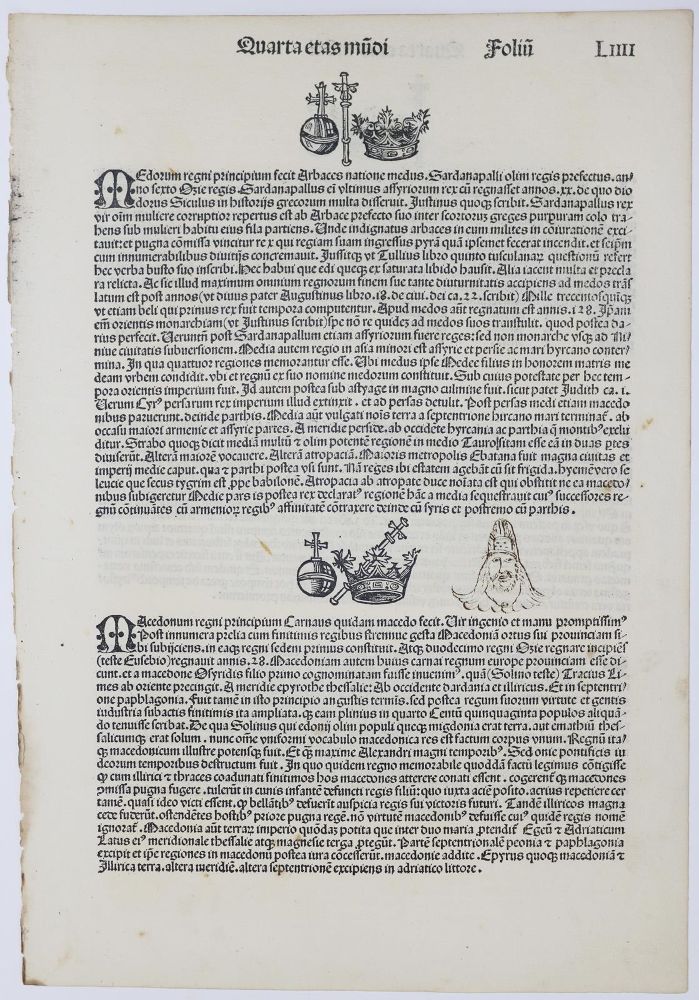 Quarta etas mūdi Foliū LIIII
MEdorum regni principium fecit Arbaces natione medus. Sardanapalli olim regis prefectus. an/
no sexto Ozie regis. Sardanapallus em̄ vltimus assyriorum rex cū regnasset annos. xx. de quo dio
dorus Siculus in historijs grecorum multa disseruit. Justinus quoqꝫ scribit. Sardanapallus rex
vir oīm muliere corruptior repertus est ab Arbace prefecto suo inter scortorūꝫ greges purpuram colo tra/
hens sub mulieri habitu eius fila partiens. Unde indignatus arbaces in eum milites in cōiurationē exci/
tauit: et pugna cōmissa vincitur rex qui regiam suam ingressus pyrā quā ipsemet fecerat incendit. et seip̄m
cum innumerabilibus diuitijs concremauit. Jussitqꝫ vt Tullius libro quinto tusculanaꝝ questionū refert
hec verba busto suo inscribi. Hec habui que edi quecꝫ exsaturata libido hausit. Alia iacent multa et precla
ra relicta. Ac sic illud maximum omnium regnorum finem sue tante diuturnitatis accipiens ad medos trās
latum est post annos (vt diuus pater Augustinus libro. 18. de ciui. dei ca. 22. scribit) Mille trecentosquīqꝫ
vt etiam beli qui primus rex fuit tempora computentur. Apud medos aūt regnatum est annis. 128. Ip̄am
em̄ orientis monarchiam (vt Justinus scribit) spe nō re quidē ad medos suos transtulit. quod postea da/
rius perfecit. Ueruntn̄ post Sardanapallum etiam assyriorum fuere reges: sed non monarche vsqꝫ ad Ni/
niue ciuitatis subuersionem. Media autem regio in asia minori est assyrie et persie ac mari hyrcano conter/
mina. In qua quattuor regiones memorantur esse. Ubi medus ipse Medee filius in honorem matris me
deam vrbem condidit. vbi et regnū ex suo nomine medorum constituit. Sub cuius potestate per hec tem/
pora orientis imperium fuit. Id autem postea sub astyage in magno culmine fuit. sicut patet Judith ca. 1.
Uerum Cyrꝰ persarum rex imperium illud extinxit. et ad persas detulit. Post persas medi etiam macedo
nibus paruerunt. deinde parthis. Media aūt vulgati nōis terra a septentrione hircano mari terminaī. ab
occasu maiori armenie et assyrie partes. A meridie perside. ab occidēte hyrcania ac parthia qꝫ montibꝰ exclu
ditur. Strabo quoqꝫ dicit mediā multū ⁊ olim potentē regionē in medio Tauro sitam esse eā in duas ptes
diuiserūt. Alterā maiorē vocauere. Alterā atropaciā. Maioris metropolis Ebatana fuit magna ciuitas et
imperij medie caput. qua ⁊ parthi postea vsi sunt. Nā reges ibi estatem agebāt cū sit frigida. hyemē vero se
leucie que secus tygrim est ꝓpe babilonē. Atropacia ab atropate duce noīata est qui obstitit ne ea macedo/
nibus subigeretur Medie pars is postea rex declaratꝰ regionē hāc a media sequestrauit cuiꝰ successores re/
gnū cōtinuātes cū armenioꝝ regibꝰ affinitatē cōtraxere deinde cū syris et postremo cū parthis.
MAcedonum regni principium Carnaus quidam macedo fecit. Uir ingenio et manu promptissimꝰ
Post innumera prelia cum finitimis regibus strennue gesta Macedoniā ortus sui prouinciam si/
bi subijciens. in eaqꝫ regni sedem primus constituit. Atqꝫ duodecimo regni Ozie regnare incipiēs
(teste Eusebio) regnauit annis. 28. Macedoniam autem huius carnai regnum europe prouinciam esse di/
cunt. et a macedone Osyridis filio primo cognominatam fuisse inuenimꝰ. quā (Solino teste) Tracius Li/
mes ab oriente precingit. A meridie epyrothe thessalie: Ab occidente dardania et illiricus. Et in septentri/
one paphlagonia. Fuit tamē in isto principio angustis terminis. sed postea regum suorum virtute et gentis
industria subactis finitimis ita ampliata. qꝫ eam plinius in quarto Centū quinquaginta populos aliquā/
do tenuisse scribat. De qua Solinus qui edonij olim populi quecꝫ migdonia erat terra. aut emathiū thes/
salicumqꝫ erat solum. nunc om̄e vniformi vocabulo macedonica res est factum corpus vnum. Regnū ita/
qꝫ macedonicum illustre potensqꝫ fuit. Et qꝫ maxime Alexandri magni temporibꝰ. Sed onie pontificis iu
deorum temporibus destructum fuit. In quo quidem regno memorabile quoddā factū legimus cōtigisse
ꝙ cum illirici ⁊ thraces coadunati finitimos hos macedones atterere conati essent. cogerent qꝫ macedones
ꝯmissa pugna fugere. tulerūt in cunis infantē defuncti regis filiū: quo iuxta aciē posito. acrius repetiere cer
tamē. quasi ideo victi essent. ꝙ bellātibꝰ defuerūt auspicia regis sui victoris futuri. Tandē illiricos magna
cede fuderūt. ostendētes hostibꝰ priore pugna regē. nō virtutē macedonibꝰ defuisse cuiꝰ quidē regis nomē
ignoraī. Macedonia aūt terraꝝ imperio quōdaꝫ potita que inter duo maria ꝓtendiī Egeū ⁊ Adriaticum
Latus eiꝰ meridionale thessalie atqꝫ magnesie terga ꝓtegūt. Partē septentrionalē peonia ⁊ paphlagonia
excipit et ip̄e regiones in macedonū postea iura cōcesserūt. macedonie addite. Epyrus quoqꝫ macedoniā ⁊
Illirica terra. altera meridiē. altera septentrionē excipiens in adriatico littore.